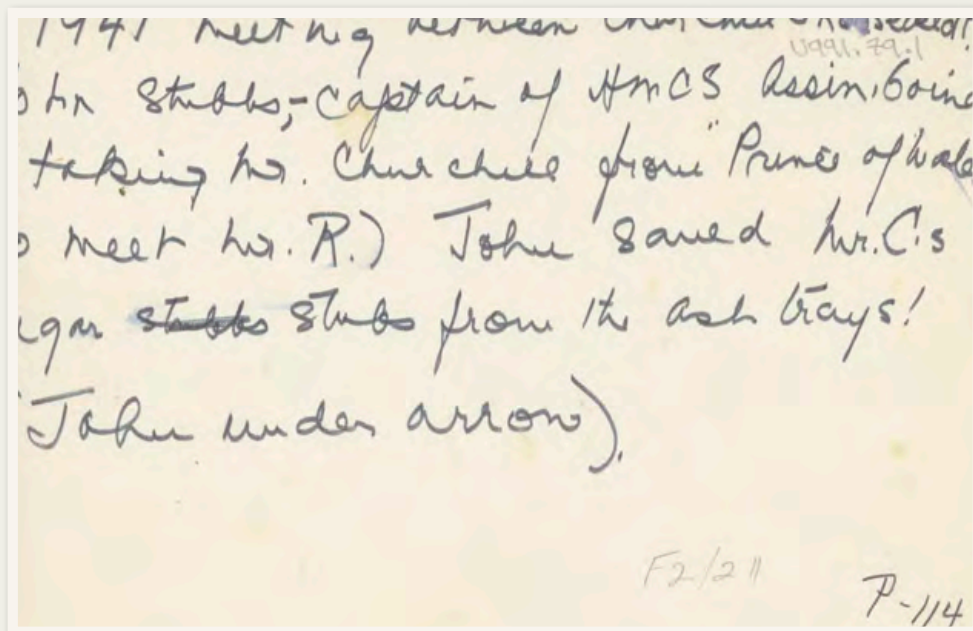 1941 meeting between Churchill
U991.79.1
ohn Stubbs,-Captain of HMCS Assiniboine
taking Mr. Churchill from "Prince of Wale
o meet Mr. R.) John saved Mr.C's
igar stubbs stubs from the ash trays!
(John under arrow).
F2/211
P-114